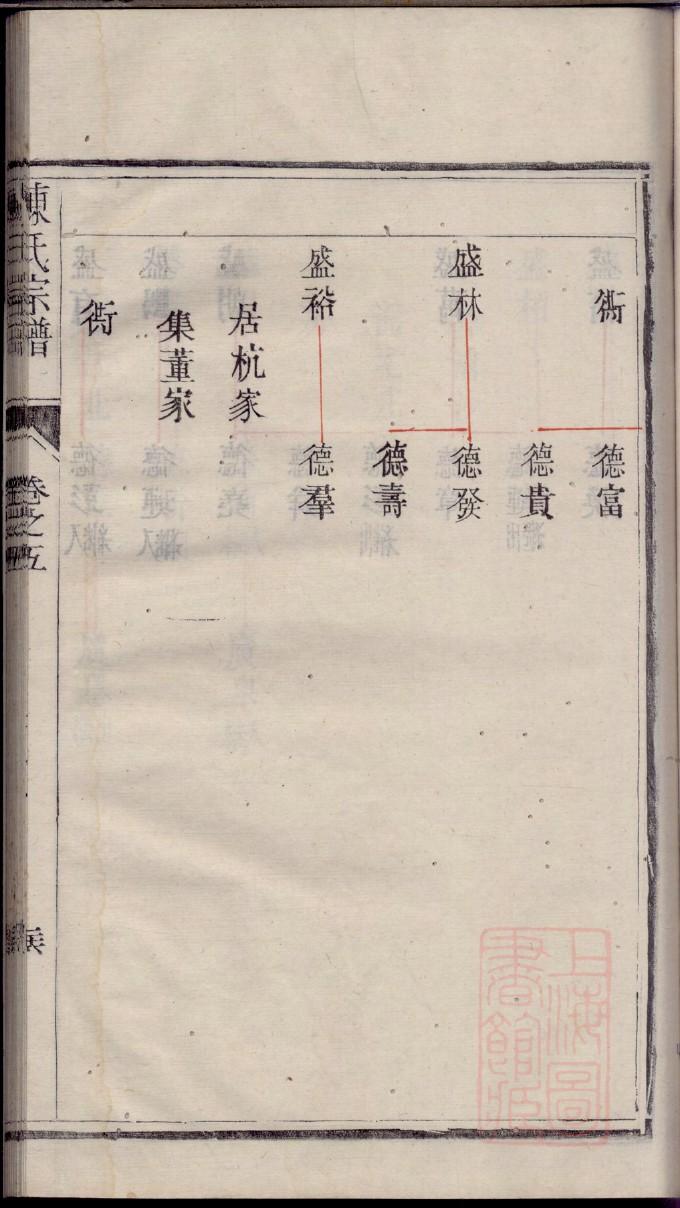 衖
德富
德貴
盛林
德發
德壽
盛裕
德羣
居杭家
集董家
衖
陳氏宗譜
卷之五
上海圖書館藏